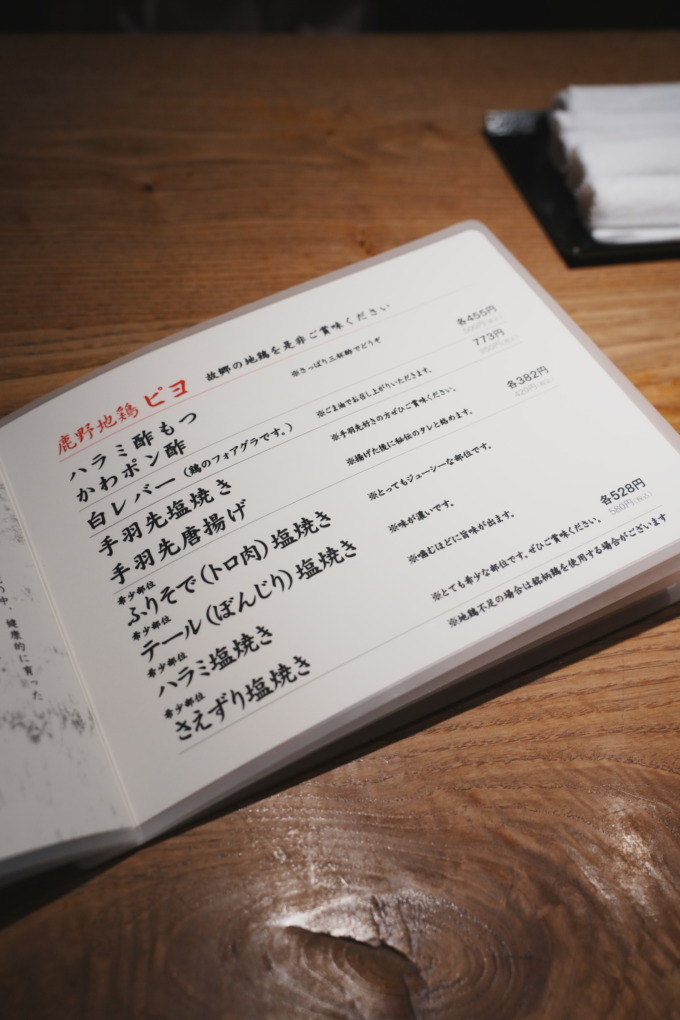 鹿野地鶏 ピヨ 故郷の地鶏を是非ご賞味ください
ハラミ酢もつ ※さっぱり三杯酢でどうぞ 各455円
かわポン酢
白レバー (鶏のフォアグラです。) ※ごま油でお召し上がりいただきます。 773円
手羽先塩焼き ※手羽先好きの方ぜひご賞味ください。 各382円
420円(税込)
手羽先唐揚げ ※揚げた後に秘伝のタレと絡めます。
希少部位
ふりそで(トロ肉)塩焼き ※とってもジューシーな部位です。
希少部位
テール(ぼんじり)塩焼き ※味が濃いです。
希少部位
ハラミ塩焼き ※噛むほどに旨味が出ます。
希少部位
さえずり塩焼き ※とても希少な部位です。ぜひご賞味ください。 各528円
580円(税込)
※地鶏不足の場合は銘柄鶏を使用する場合がございます
健康的に育った